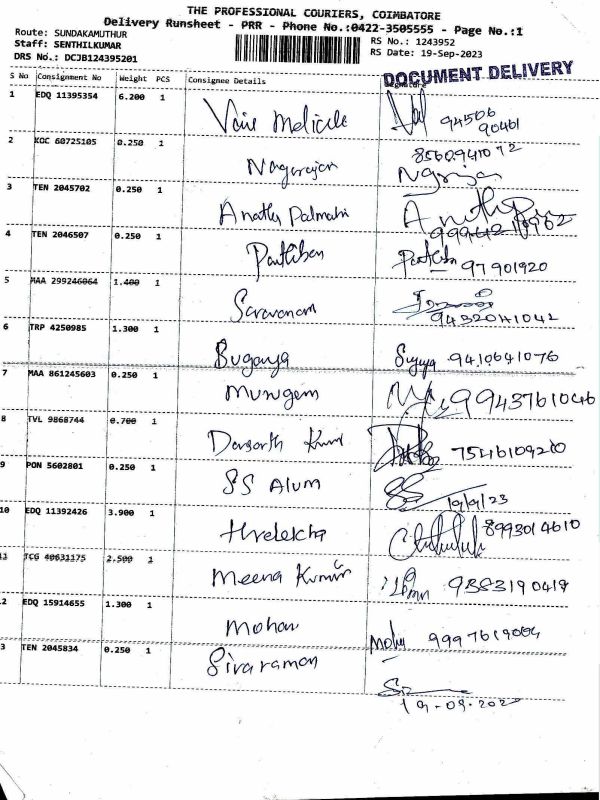 THE PROFESSIONAL COURIERS, COIMBATORE
Delivery Runsheet - PRR - Phone No.:0422-3505555 - Page No.:1
Route: SUNDAKAMUTHUR
Staff: SENTHILKUMAR
DRS No.: DCJB124395201
RS No.: 1243952
RS Date: 19-Sep-2023
DOCUMENT DELIVERY
S No Consignment No Weight PCS Consignee Details Signature
1 EDQ 11395354 6.200 1 94506
90461
2 KOC 60725105 0.250 1 Nagarajan
3 TEN 2045702 0.250 1
4 TEN 2046507 0.250 1 Parthiban 97901920
5 MAA 299246064 1.400 1 Saravanam
6 TRP 4250985 1.300 1 9410641076
7 MAA 861245603 0.250 1 Murugem 9943761046
8 TVL 9868744 0.700 1
9 PON 5602801 0.250 1 SS Alum 19/9/23
10 EDQ 11392426 3.900 1 8993014610
11 TCG 40631175 2.500 1 Meena Kumar
2 EDQ 15914655 1.300 1 Mohan
3 TEN 2045834 0.250 1 Sivaraman